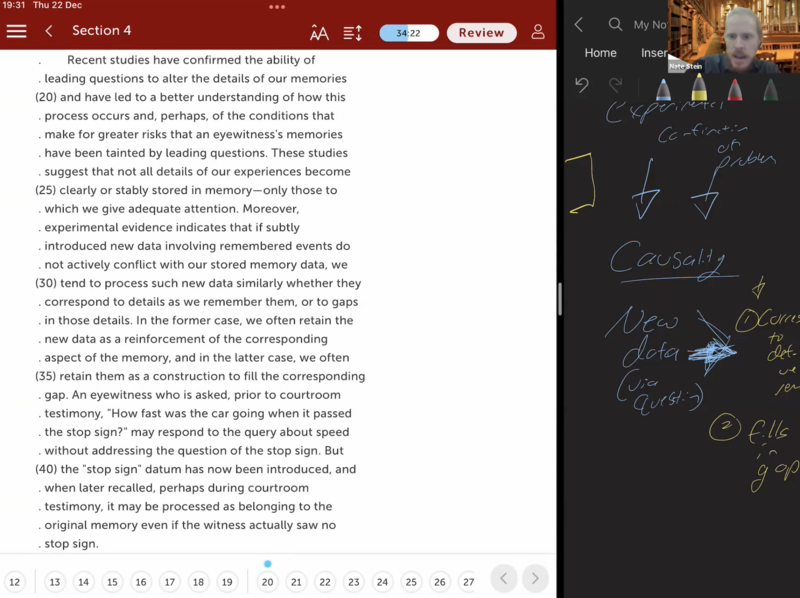 19:31 Thu 22 Dec
Section 4
AA
34:22
Review
. Recent studies have confirmed the ability of
. leading questions to alter the details of our memories
(20) and have led to a better understanding of how this
. process occurs and, perhaps, of the conditions that
. make for greater risks that an eyewitness's memories
. have been tainted by leading questions. These studies
. suggest that not all details of our experiences become
(25) clearly or stably stored in memory—only those to
. which we give adequate attention. Moreover,
. experimental evidence indicates that if subtly
. introduced new data involving remembered events do
. not actively conflict with our stored memory data, we
(30) tend to process such new data similarly whether they
. correspond to details as we remember them, or to gaps
. in those details. In the former case, we often retain the
. new data as a reinforcement of the corresponding
. aspect of the memory, and in the latter case, we often
(35) retain them as a construction to fill the corresponding
. gap. An eyewitness who is asked, prior to courtroom
. testimony, "How fast was the car going when it passed
. the stop sign?" may respond to the query about speed
. without addressing the question of the stop sign. But
(40) the "stop sign" datum has now been introduced, and
. when later recalled, perhaps during courtroom
. testimony, it may be processed as belonging to the
. original memory even if the witness actually saw no
. stop sign.
12 13 14 15 16 17 18 19 20 21 22 23 24 25 26 27
My No
Home Inser
Nate Stein
Experimental
of
problem
Causality
New
data
(via
question)
1 Corres
to
det
we
rem
2 fills
in
gap